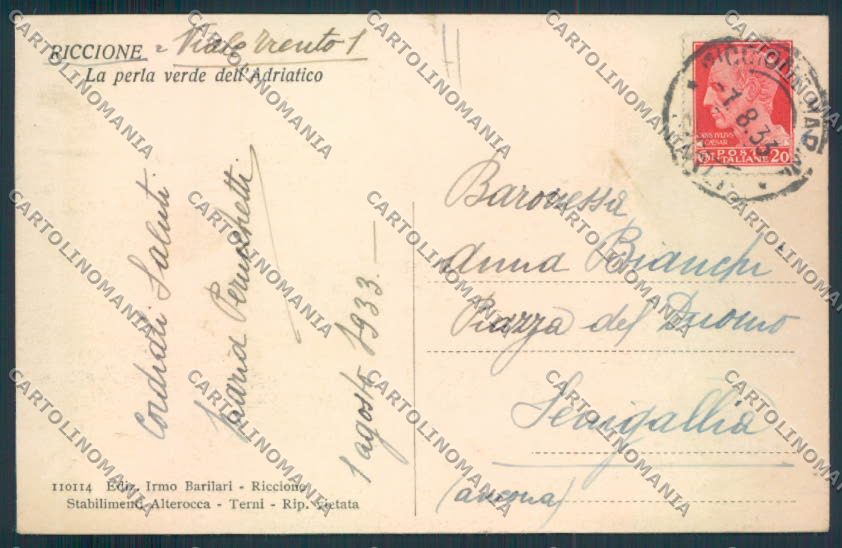 RICCIONE - Viale Trento 1
La perla verde dell'Adriatico
Cordiali Saluti
Maria
1 agosto 1933. —
110114 Ediz. Irmo Barilari - Riccione
Stabilimenti Alterocca - Terni - Rip. Vietata
RICCIONE
-1.8.33
CAESAR
POSTE
ITALIANE 20
Baronessa
Anna Bianchi
Piazza del Duomo
Senigallia
(Ancona)
CARTOLINOMANIA